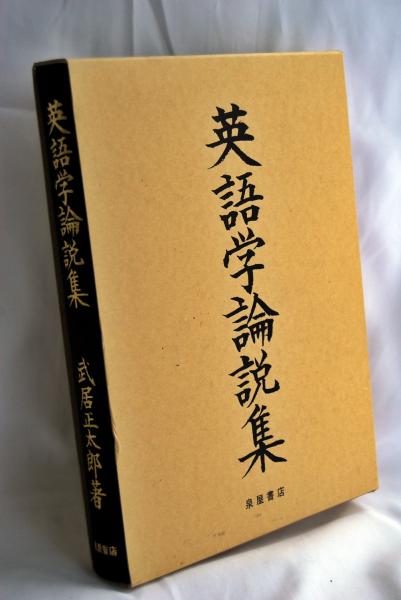 英語学論説集
武居正太郎著
泉屋書店
英語学論説集
泉屋書店